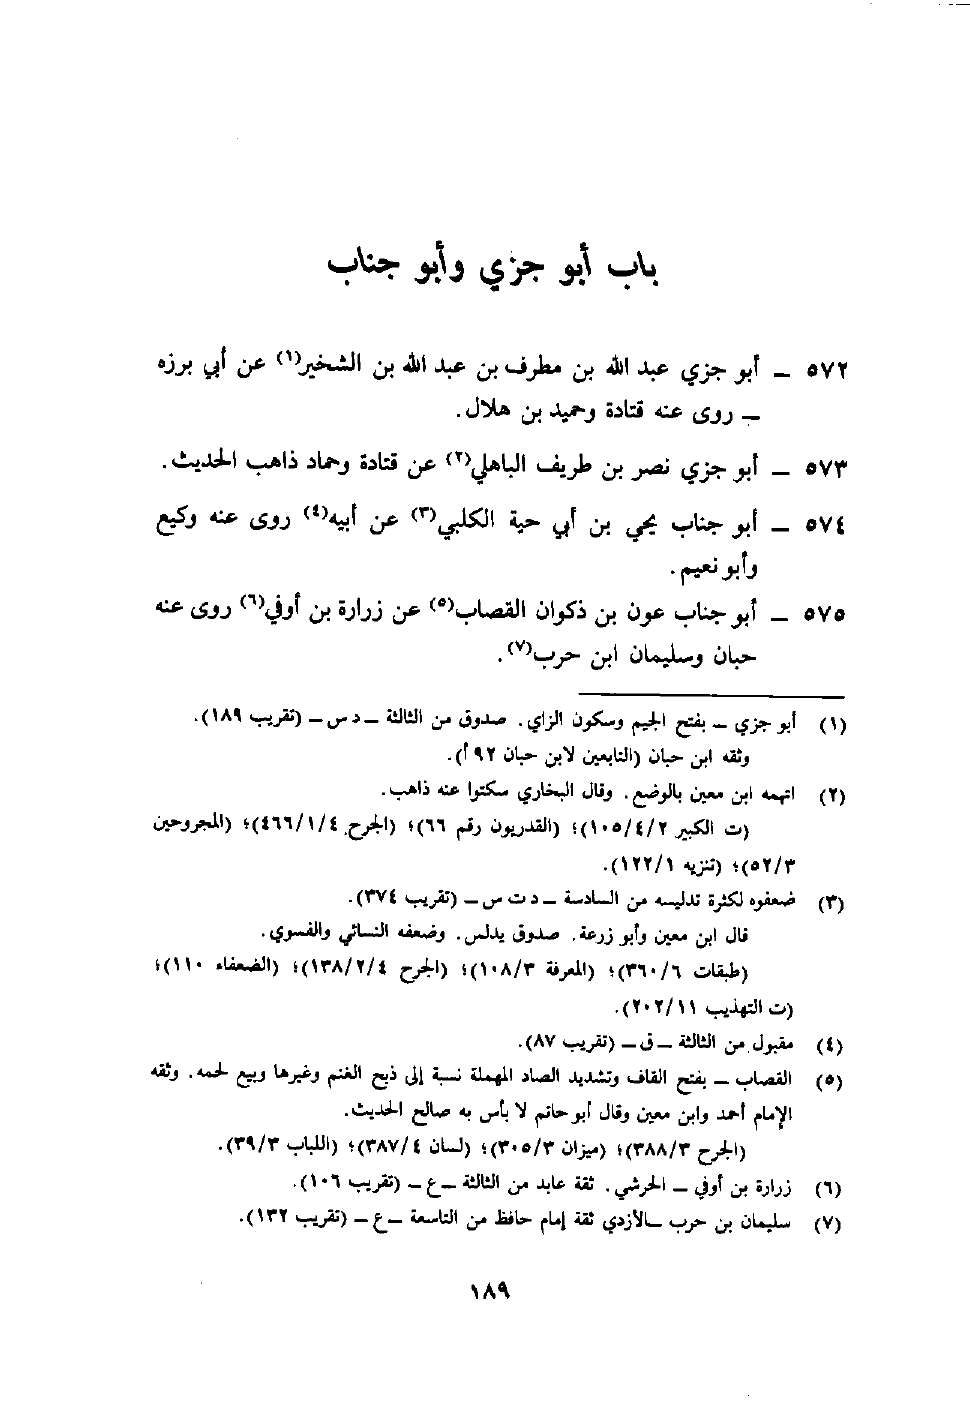 باب أبو جزي وأبو جناب
٥٧٢ ـ أبو جزي عبد الله بن مطرف بن عبد الله بن الشخير(١) عن أبي برزه
ـ روى عنه قتادة وحميد بن هلال.
٥٧٣ ـ أبو جزي نصر بن طريف الباهلي(٢) عن قتادة وحماد ذاهب الحديث.
٥٧٤ ـ أبو جناب يحي بن أبي حية الكلبي(٣) عن أبيه(٤) روى عنه وكيع
وأبو نعيم.
٥٧٥ ـ أبو جناب عون بن ذكوان القصاب(٥) عن زرارة بن أوفي(٦) روى عنه
حبان وسليمان ابن حرب(٧).
(١) أبو جزي ـ بفتح الجيم وسكون الزاي. صدوق من الثالثة ـ د س ـ (تقريب ١٨٩).
وثقه ابن حبان (التابعين لابن حبان ٩٢ أ).
(٢) اتهمه ابن معين بالوضع. وقال البخاري سكتوا عنه ذاهب.
(ت الكبير ١٠٥/٤/٢)؛ (القدريون رقم ٦٦)؛ (الجرح ٤٦٦/١/٤)؛ (المجروحين
٥٢/٣)؛ (تنزيه ١٢٢/١).
(٣) ضعفوه لكثرة تدليسه من السادسة ـ د ت س ـ (تقريب ٣٧٤).
قال ابن معين وأبو زرعة. صدوق يدلس. وضعفه النسائي والفسوي.
(طبقات ٣٦٠/٦)؛ (المعرفة ١٠٨/٣)؛ (الجرح ١٣٨/٢/٤)؛ (الضعفاء ١١٠)؛
(ت التهذيب ٢٠٢/١١).
(٤) مقبول من الثالثة ـ ق ـ (تقريب ٨٧).
(٥) القصاب ـ بفتح القاف وتشديد الصاد المهملة نسبة إلى ذبح الغنم وغيرها وبيع لحمه. وثقه
الإمام أحمد وابن معين وقال أبو حاتم لا بأس به صالح الحديث.
(الجرح ٣٨٨/٣)؛ (ميزان ٣٠٥/٣)؛ (لسان ٣٨٧/٤)؛ (اللباب ٣٩/٣).
(٦) زرارة بن أوفي ـ الحرشي. ثقة عابد من الثالثة ـ ع ـ (تقريب ١٠٦).
(٧) سليمان بن حرب ـ الأزدي ثقة إمام حافظ من التاسعة ـ ع ـ (تقريب ١٣٢).
١٨٩